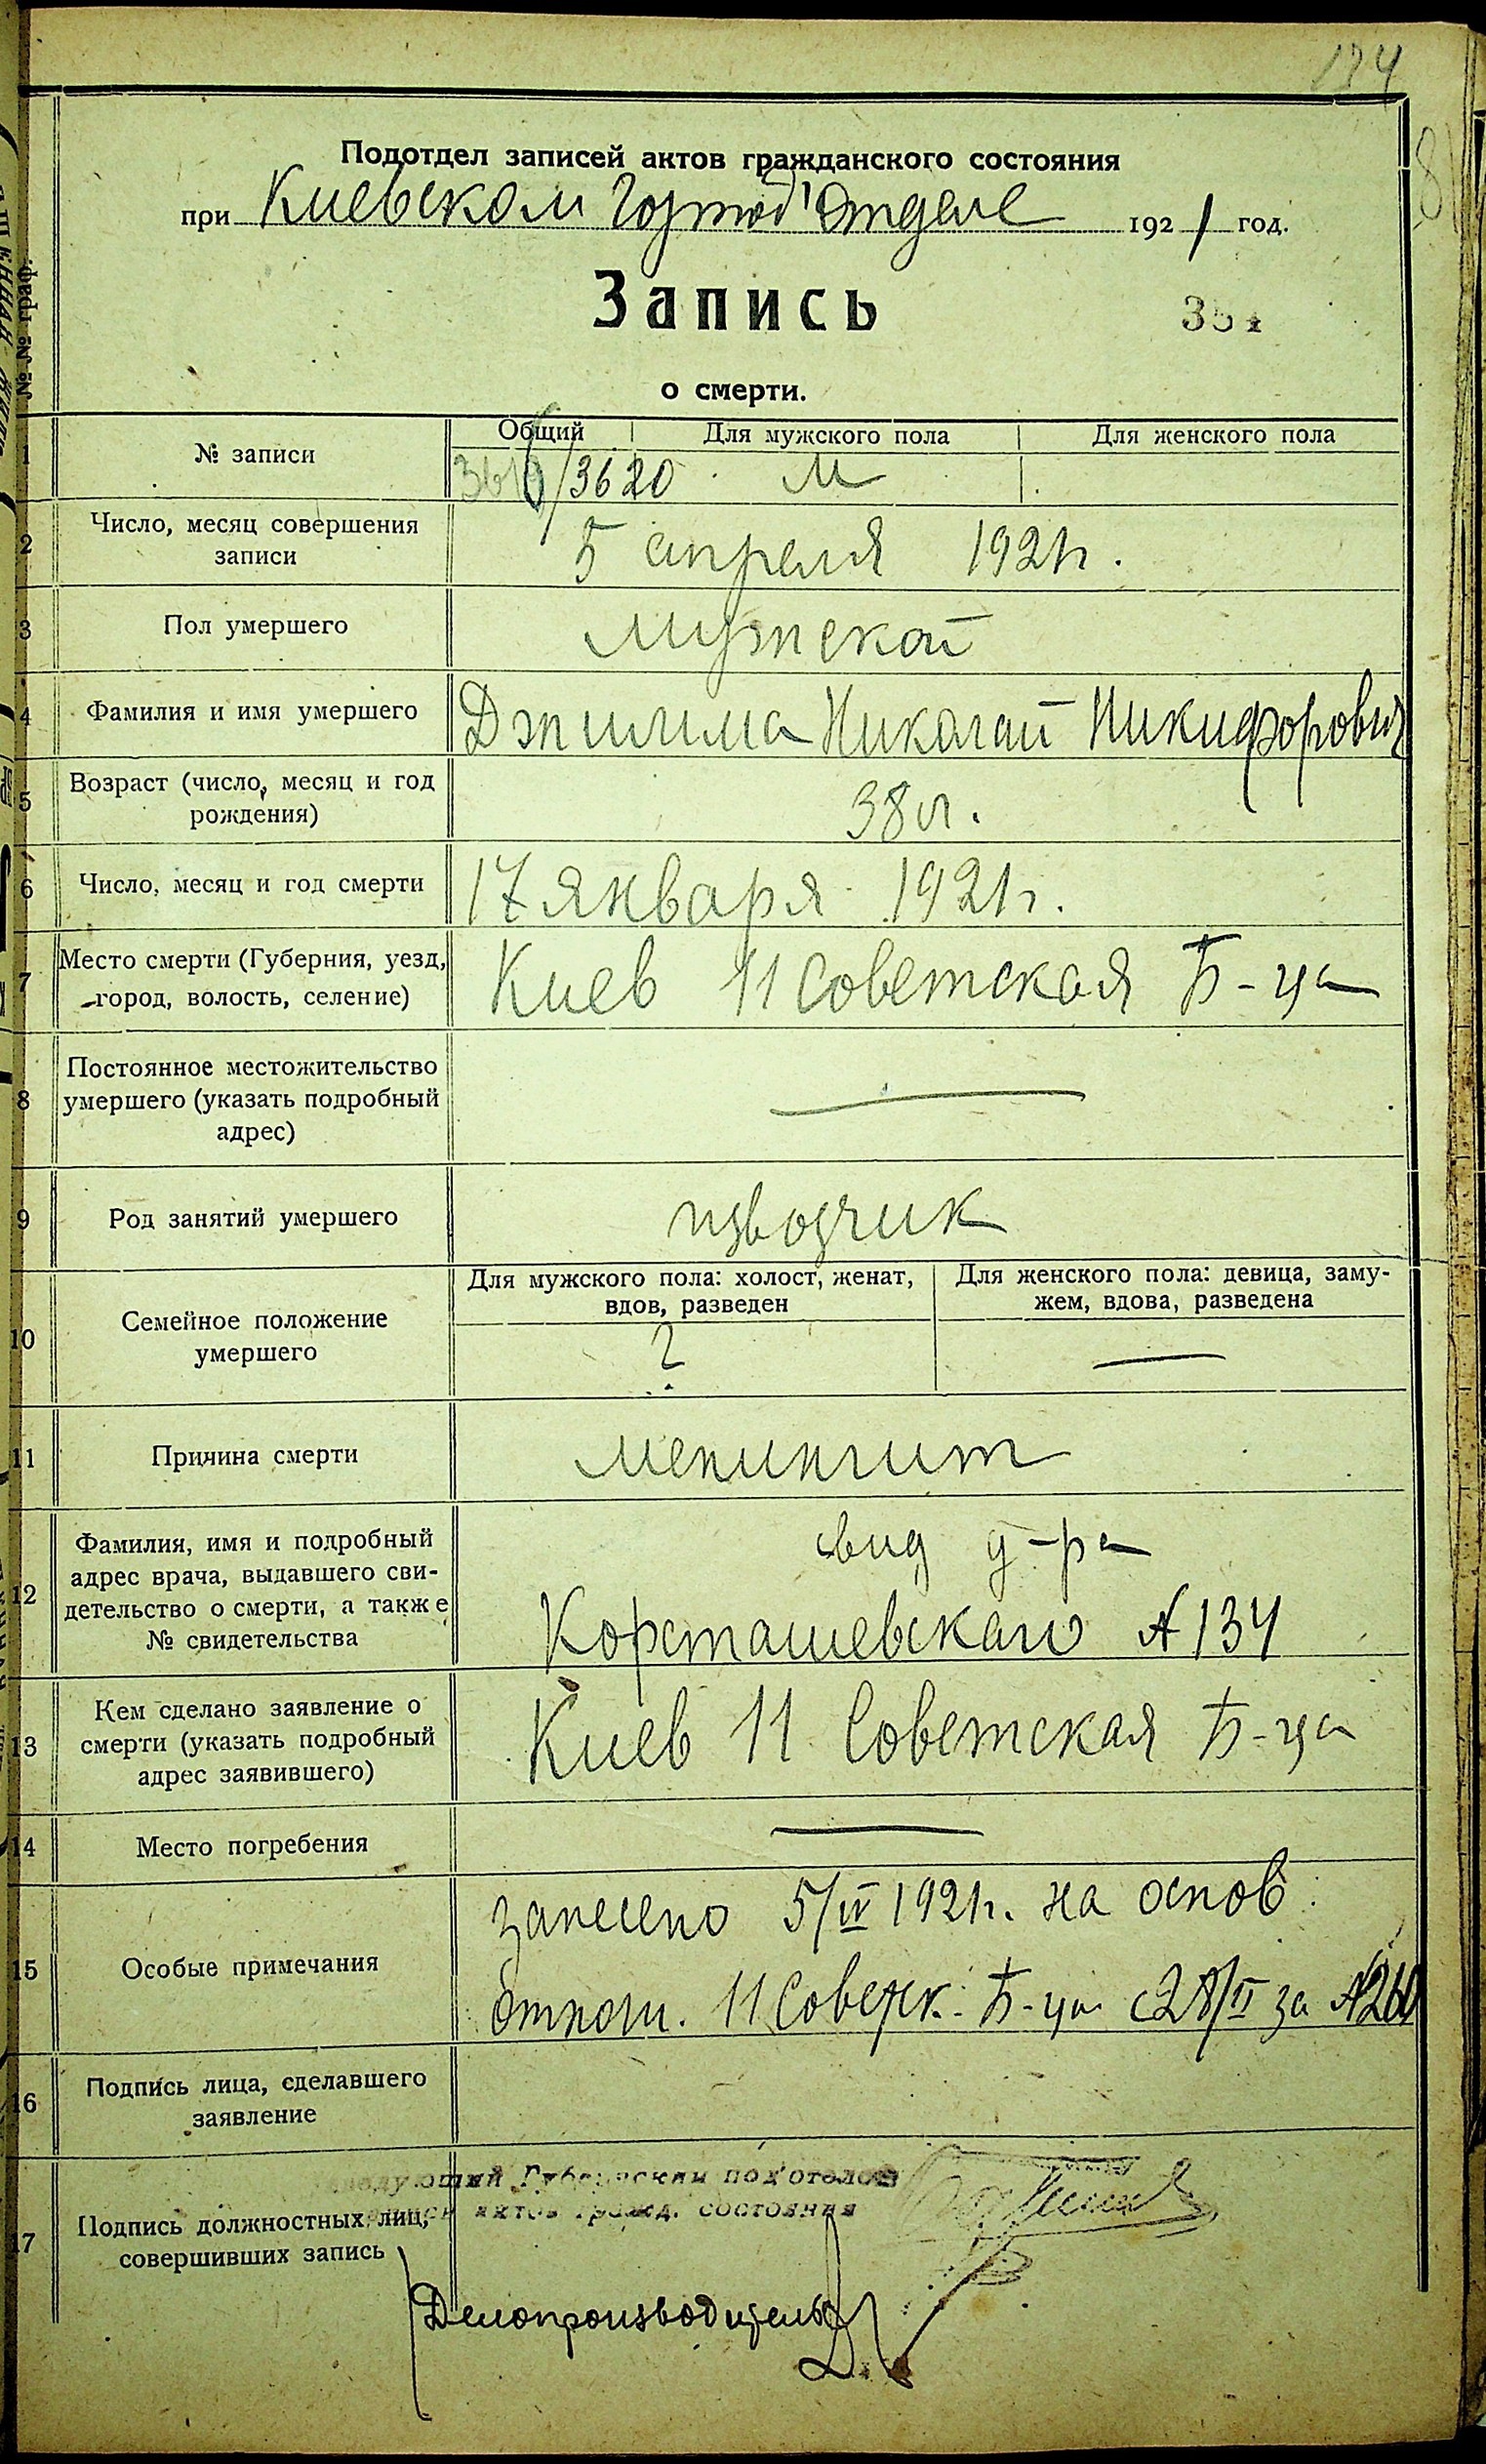 174
Подотдел записей актов гражданского состояния
при Киевском 1921 год.
Запись
354
о смерти.
№№ граф.
1 № записи
Общий Для мужского пола Для женского пола
3619/3620 М
2 Число, месяц совершения записи
5 апреля 1921г.
3 Пол умершего
мужской
4 Фамилия и имя умершего
Джилима Николай Никифорович
5 Возраст (число, месяц и год рождения)
38 л.
6 Число, месяц и год смерти
17 января 1921г.
7 Место смерти (Губерния, уезд, город, волость, селение)
Киев 11 Советская Б-ца
8 Постоянное местожительство умершего (указать подробный адрес)
—
9 Род занятий умершего
извозчик
10 Семейное положение умершего
Для мужского пола: холост, женат, вдов, разведен
Для женского пола: девица, замужем, вдова, разведена
? —
11 Причина смерти
менингит
12 Фамилия, имя и подробный адрес врача, выдавшего свидетельство о смерти, а также № свидетельства
свид д-ра
Корсташевского № 134
13 Кем сделано заявление о смерти (указать подробный адрес заявившего)
Киев 11 Советская Б-ца
14 Место погребения
—
15 Особые примечания
Занесено 5/IV 1921г. на основ.
отнош. 11 Советск. Б-цы с 28/II за №
16 Подпись лица, сделавшего заявление
17 Подпись должностных лиц, совершивших запись
подотделом
актов гражд. состояния
Делопроизводитель